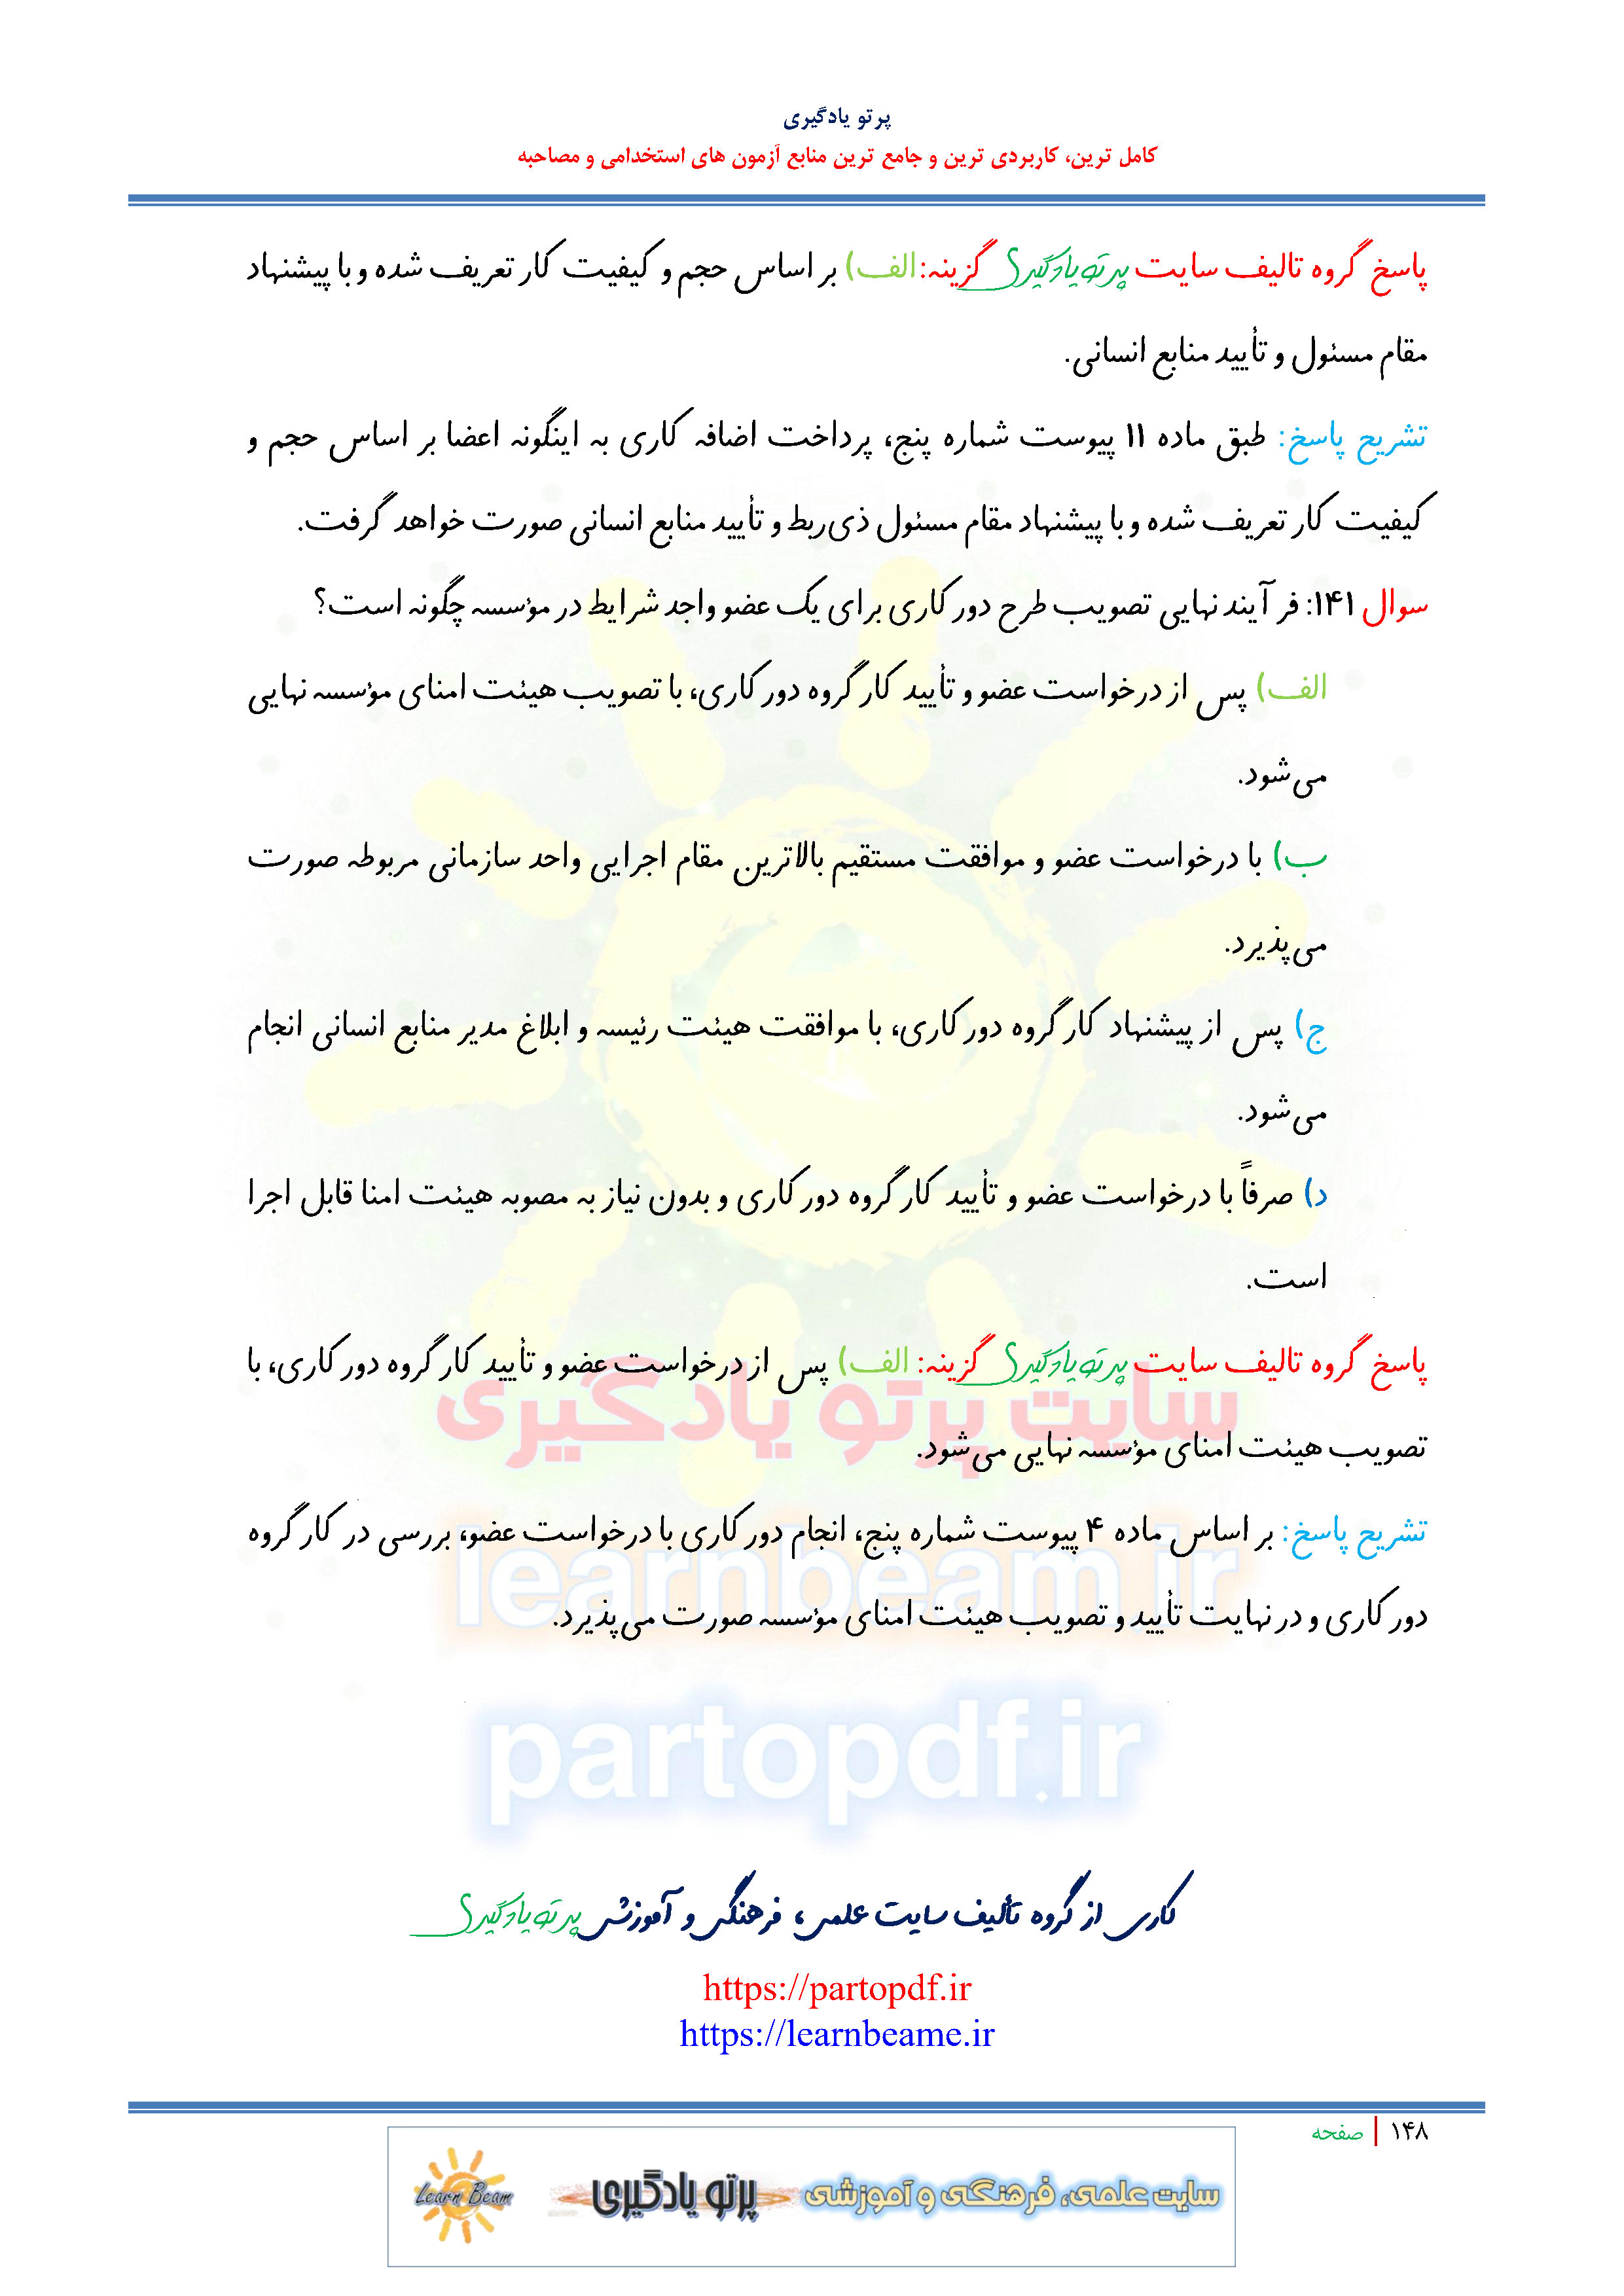 پرتو یادگیری
کامل ترین، کاربردی ترین و جامع ترین منابع آزمون های استخدامی و مصاحبه
پاسخ گروه تالیف سایت پرتو یادگیری گزینه: الف) بر اساس حجم و کیفیت کار تعریف شده و با پیشنهاد
مقام مسئول و تأیید منابع انسانی.
تشریح پاسخ: طبق ماده ۱۱ پیوست شماره پنج، پرداخت اضافه کاری به اینگونه اعضا بر اساس حجم و
کیفیت کار تعریف شده و با پیشنهاد مقام مسئول ذی‌ربط و تأیید منابع انسانی صورت خواهد گرفت.
سوال ۱۴۱: فرآیند نهایی تصویب طرح دورکاری برای یک عضو واجد شرایط در مؤسسه چگونه است؟
الف) پس از درخواست عضو و تأیید کارگروه دورکاری، با تصویب هیئت امنای مؤسسه نهایی
می‌شود.
ب) با درخواست عضو و موافقت مستقیم بالاترین مقام اجرایی واحد سازمانی مربوطه صورت
می‌پذیرد.
ج) پس از پیشنهاد کارگروه دورکاری، با موافقت هیئت رئیسه و ابلاغ مدیر منابع انسانی انجام
می‌شود.
د) صرفاً با درخواست عضو و تأیید کارگروه دورکاری و بدون نیاز به مصوبه هیئت امنا قابل اجرا
است.
پاسخ گروه تالیف سایت پرتو یادگیری گزینه: الف) پس از درخواست عضو و تأیید کارگروه دورکاری، با
تصویب هیئت امنای مؤسسه نهایی می‌شود.
سایت پرتو یادگیری
تشریح پاسخ: بر اساس ماده ۴ پیوست شماره پنج، انجام دورکاری با درخواست عضو، بررسی در کارگروه
learnbeam.ir
دورکاری و در نهایت تأیید و تصویب هیئت امنای مؤسسه صورت می‌پذیرد.
partopdf.ir
کاری از گروه تألیف سایت علمی، فرهنگی و آموزشی پرتو یادگیری
https://partopdf.ir
https://learnbeame.ir
۱۴۸ | صفحه
سایت علمی، فرهنگی و آموزشی پرتو یادگیری Learn Beam